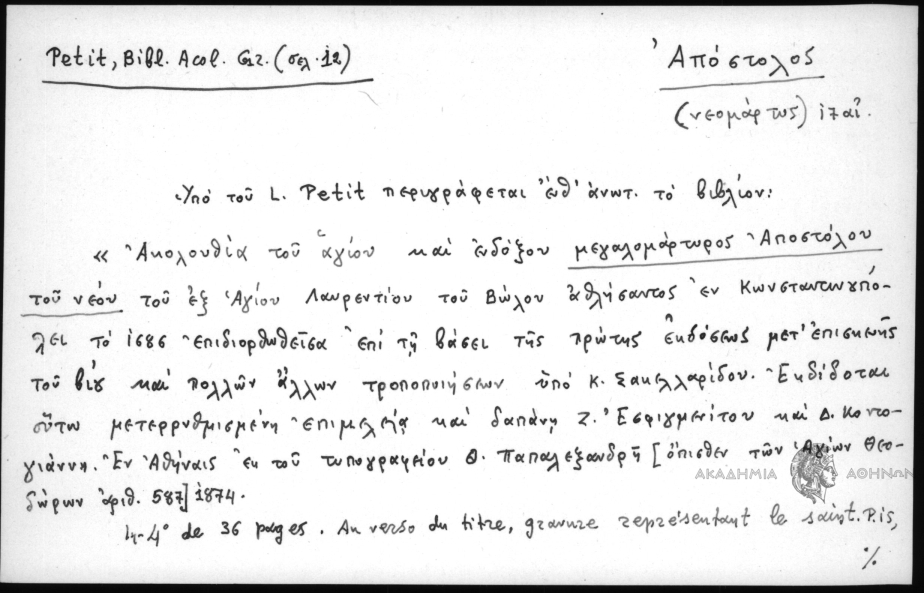 Petit, Bibl. Acol. Gr. (σελ. 12)
Ἀπόστολος
(νεομάρτυς)
Ὑπό τοῦ L. Petit περιγράφεται ἐνθ' ἀνωτ. τό βιβλίον:
« Ἀκολουθία τοῦ ἁγίου καί ἐνδόξου μεγαλομάρτυρος Ἀποστόλου
τοῦ νέου τοῦ ἐξ Ἁγίου Λαυρεντίου τοῦ Βώλου ἀθλήσαντος ἐν Κωνσταντινυπό-
λει τό 1686 ἐπιδιορθωθεῖσα ἐπί τῇ βάσει τῆς πρώτης ἐκδόσεως μετ' ἐπισκευῆς
τοῦ βίου καί πολλῶν ἄλλων τροποποιήσεων ὑπό Κ. Σακελλαρίδου. Ἐκδίδοται
οὕτω μετερρυθμισμένη ἐπιμελείᾳ καί δαπάνῃ Ζ. Ἐσφιγμενίτου καί Δ. Κοντο-
γιάννη. Ἐν Ἀθήναις ἐκ τοῦ τυπογραφείου Θ. Παπαλεξανδρῆ [ὄπισθεν τῶν Ἁγίων Θεο-
δώρων ἀριθ. 587] 1874.
In-4° de 36 pages. Au verso du titre, gravure représentant le saint. P. is,
%
ΑΚΑΔΗΜΙΑ ΑΘΗΝΩΝ